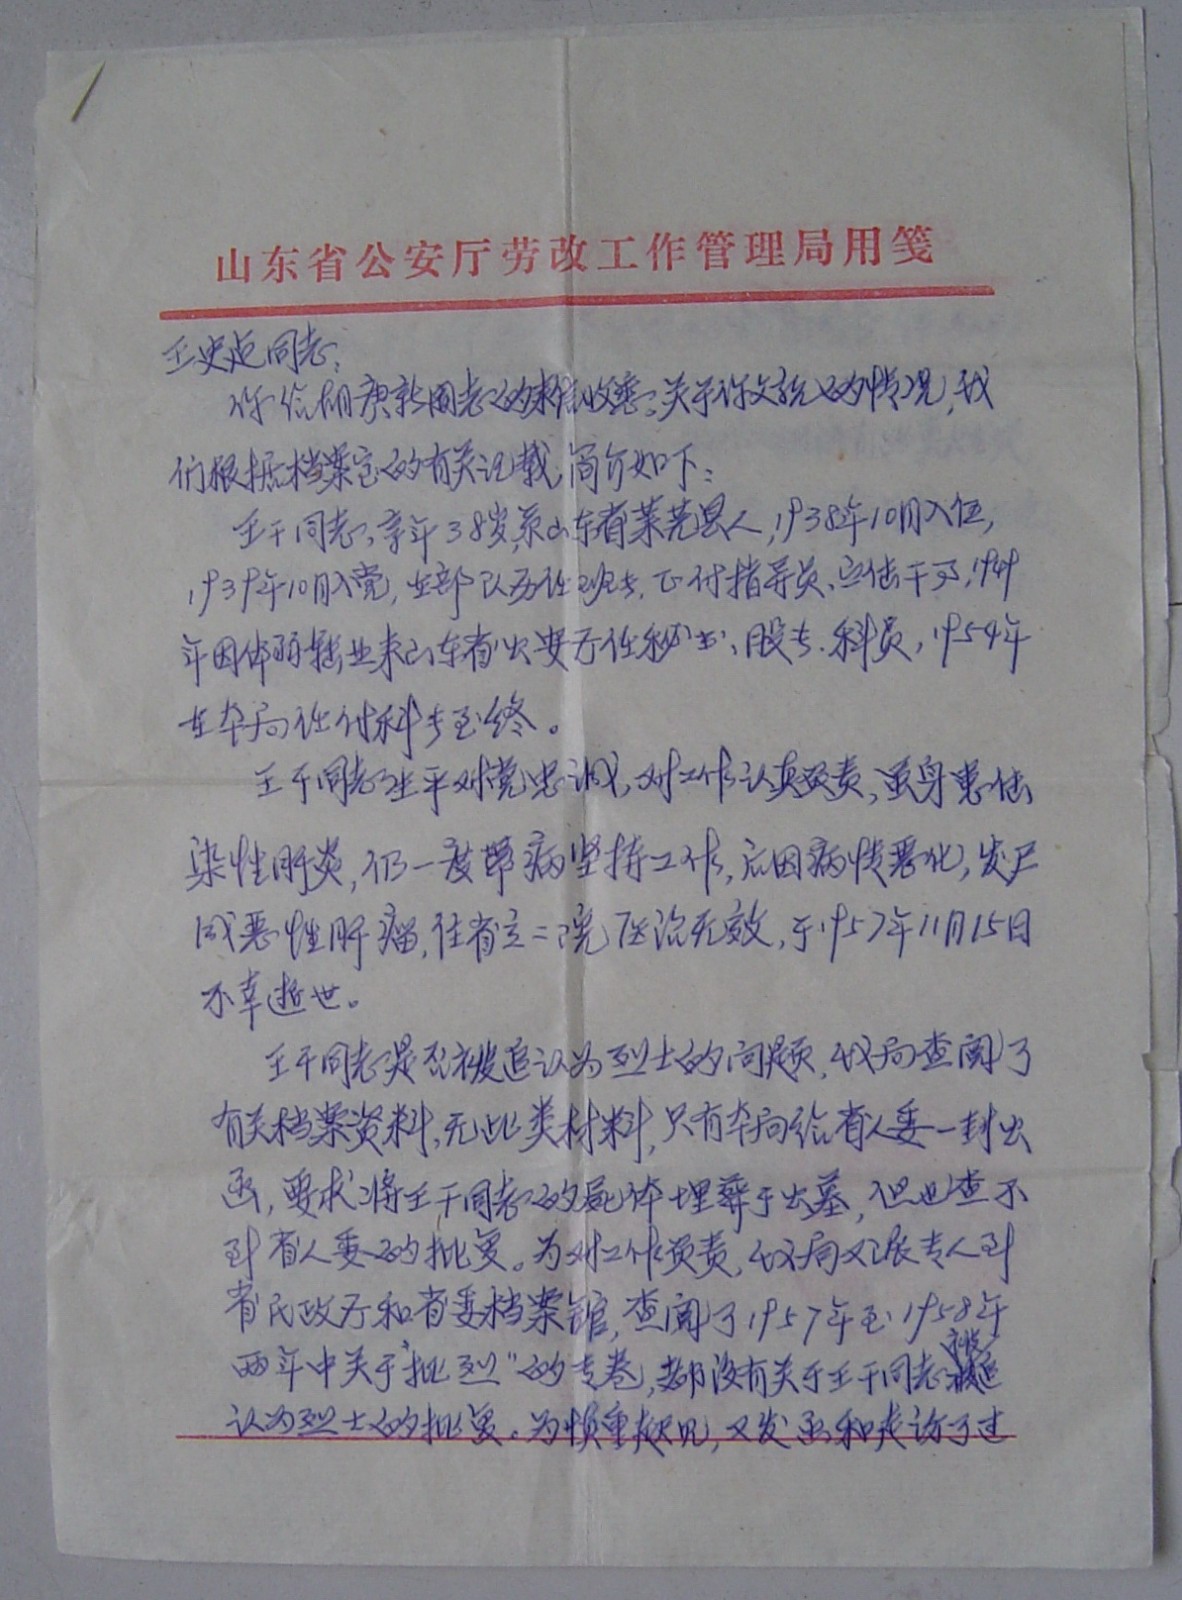 山东省公安厅劳改工作管理局用笺
王史运同志:
你给胡庚新同志的来信收悉。关于你父亲的情况,我
们根据档案室的有关记载,简介如下:
王干同志,享年38岁,系山东省莱芜县人,1938年10月入伍,
1939年10月入党,在部队历任班长、正付指导员、宣传干事,1949
年因体弱转业来山东省公安厅任秘书、股长、科员,1954年
在本局任付科长至终。
王干同志生平对党忠诚,对工作认真负责,虽身患传
染性肝炎,仍一度带病坚持工作,后因病情恶化,发尸
成恶性肝瘤,住省立二院医治无效,于1957年11月15日
不幸逝世。
王干同志是否被追认为烈士的问题,我局查阅了
有关档案资料,无此类材料,只有本局给省人委一封公
函,要求将王干同志的死体埋葬于公墓,但也查不
到省人委的批复。为对工作负责,我局又派专人到
省民政厅和省委档案馆,查阅了1957年至1958年
两年中关于"批烈"的专卷,都没有关于王干同志被追
认为烈士的批复。为慎重起见,又发函和走访了过